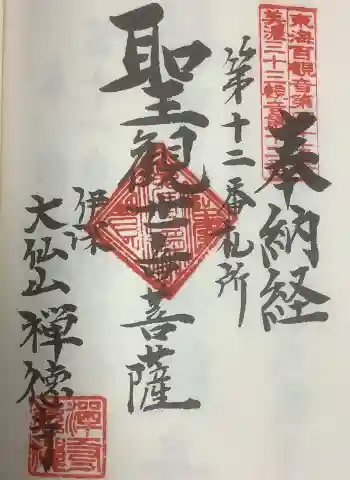 東海百觀音第
美濃三十三観音第十二番
奉納経
第十二番札所
聖観世音菩薩
伊深
大仙山禅徳寺